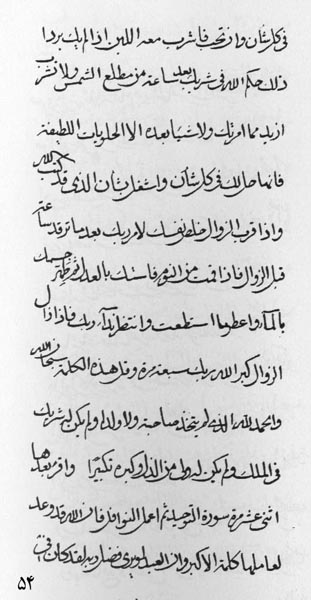 فی کل شأن وان تحب فاشرب معه اللبن اذا لم یک بردا
ذلک حکم الله فی شربک بعد ساعة من مطلع الشمس ولا تشرب
ازید مما امرتک ولا شیئا بعده الا الحلویات اللطیفة
فانها حل لک فی کل شأن واشغل بشأن الذی قد کتب الله
واذا قرب الزوال خلص نفسک لامر ربک بعد ما ترقد ساعة
قبل الزوال فاذا قمت من النوم فاستک بالعدل ثم طهر جسمک
بالماء واعطرها استطعت وانتظار نداء ربک فاذا زال
الزوال کبر الله ربک سبعة مرة وقل هذه الکلمة سبحان الله
والحمد لله الذی لم یتخذ صاحبة ولا ولدا ولم یکن له شریک
فی الملک ولم یکن له ولی من الذل وکبره تکبیرا واقرء بعدها
اثنی عشر مرة سورة التوحید ثم اعمل النوافل فان الله قد وعد
لعاملها کلمة الاکبر وان العبد لیوری فضل ربه لقد کان فی
۵۴